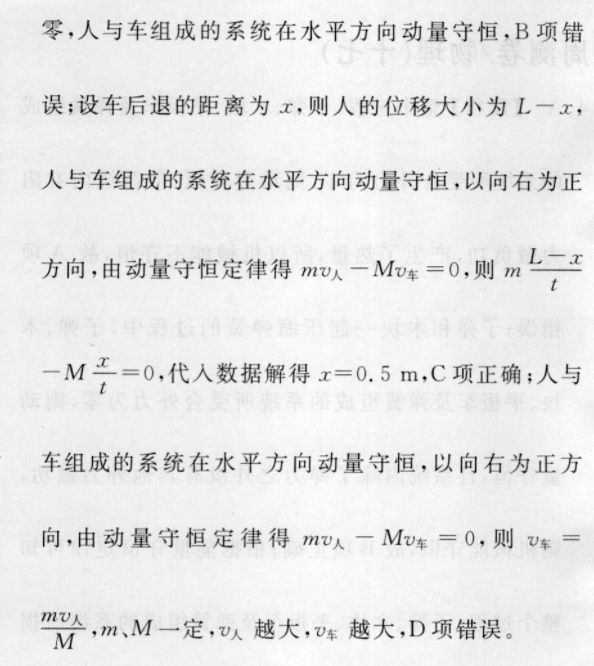 零,人与车组成的系统在水平方向动量守恒,B 项错
误;设车后退的距离为 x,则人的位移大小为 L－x,
人与车组成的系统在水平方向动量守恒,以向右为正
方向,由动量守恒定律得 mv人－Mv车＝0,则 m (L－x)/t
－M x/t＝0,代入数据解得 x＝0.5 m,C 项正确;人与
车组成的系统在水平方向动量守恒,以向右为正方
向,由动量守恒定律得 mv人－Mv车＝0,则 v车＝
mv人/M,m、M 一定,v人 越大,v车 越大,D 项错误。